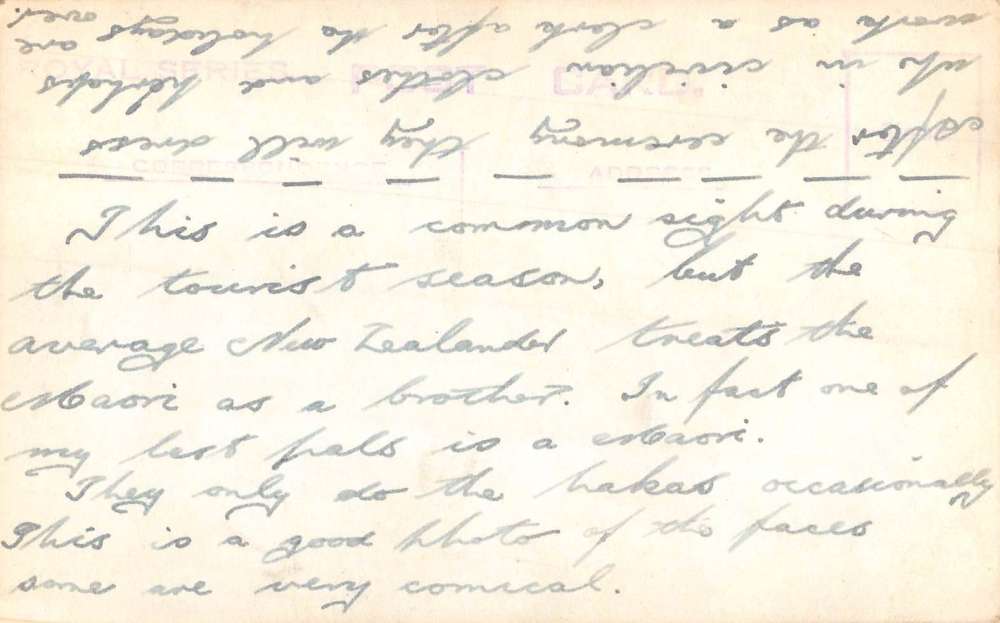 ROYAL SERIES POST CARD.
CORRESPONDENCE ADDRESS
This is a common sight during
the tourist season, but the
average New Zealander treats the
Maori as a brother. In fact one of
my best pals is a Maori.
They only do the hakas occasionally
This is a good photo of the faces
some are very comical.
After the ceremony they will dress
up in civilian clothes and perhaps
work as a clerk after the holidays are
over.